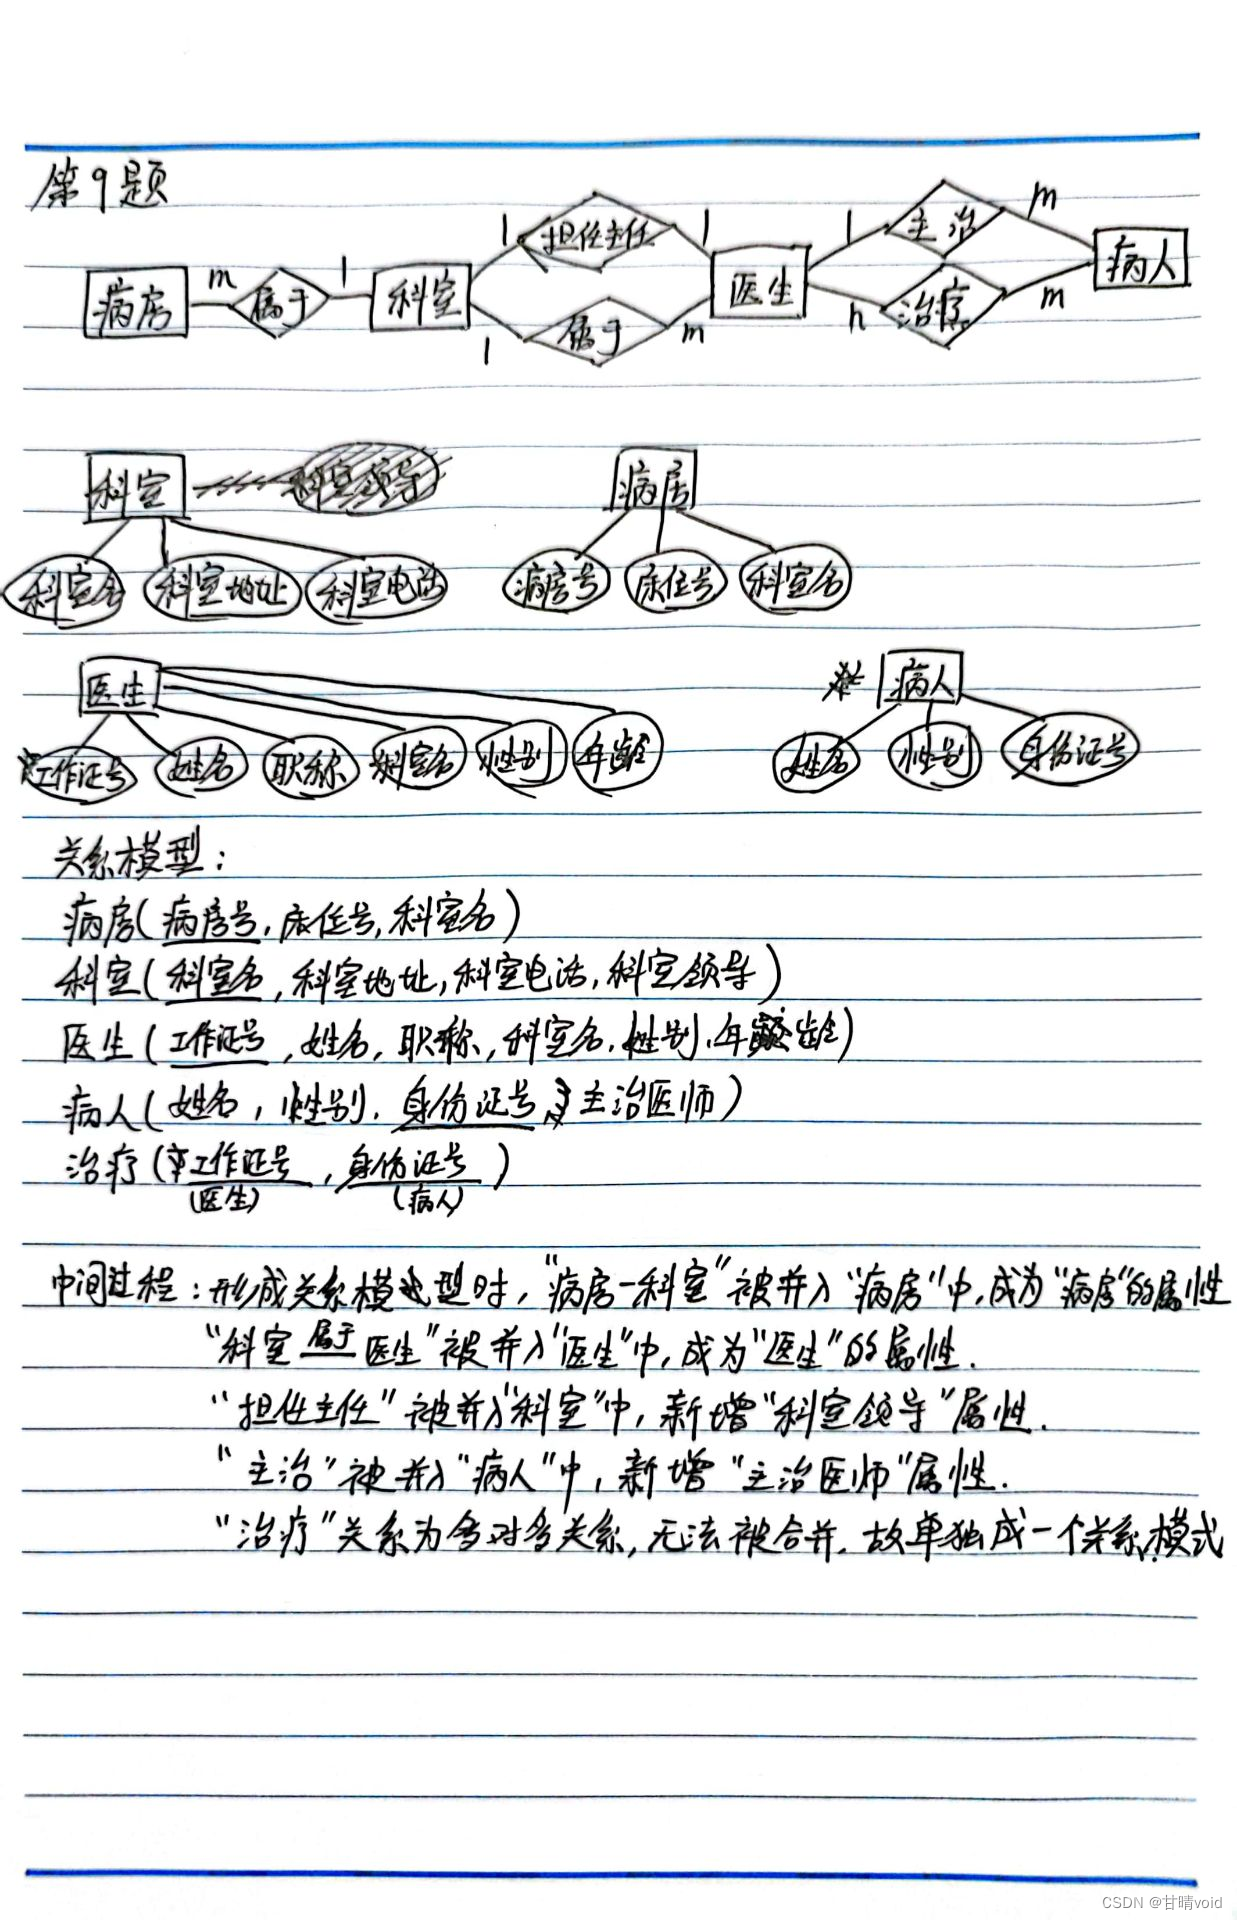 第9题
1 担任主任 1 1 主治 m
病房 m 属于 1 科室 医生 病人
1 属于 m n 治疗 m
科室 科室领导 病房
科室名 科室地址 科室电话 病房号 床位号 科室名
医生 病人
工作证号 姓名 职称 科室名 性别 年龄 姓名 性别 身份证号
关系模型：
病房(病房号，床位号，科室名)
科室(科室名，科室地址，科室电话，科室领导)
医生(工作证号，姓名，职称，科室名，性别，年龄)
病人(姓名，性别，身份证号，主治医师)
治疗(工作证号，身份证号)
(医生) (病人)
中间过程：形成关系模型时，“病房—科室”被并入“病房”中，成为“病房”的属性
“科室属于医生”被并入“医生”中，成为“医生”的属性.
“担任主任”被并入“科室”中，新增“科室领导”属性.
“主治”被并入“病人”中，新增“主治医师”属性.
“治疗”关系为多对多关系，无法被合并，故单独成一个关系模式
CSDN @甘晴void